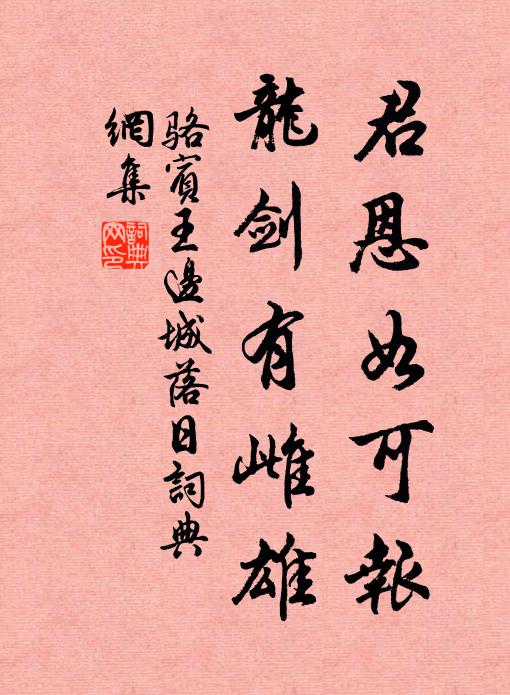 君恩如可報
龍劍有雌雄
駱賓王邊城落日詞典
網集
詞典
网印